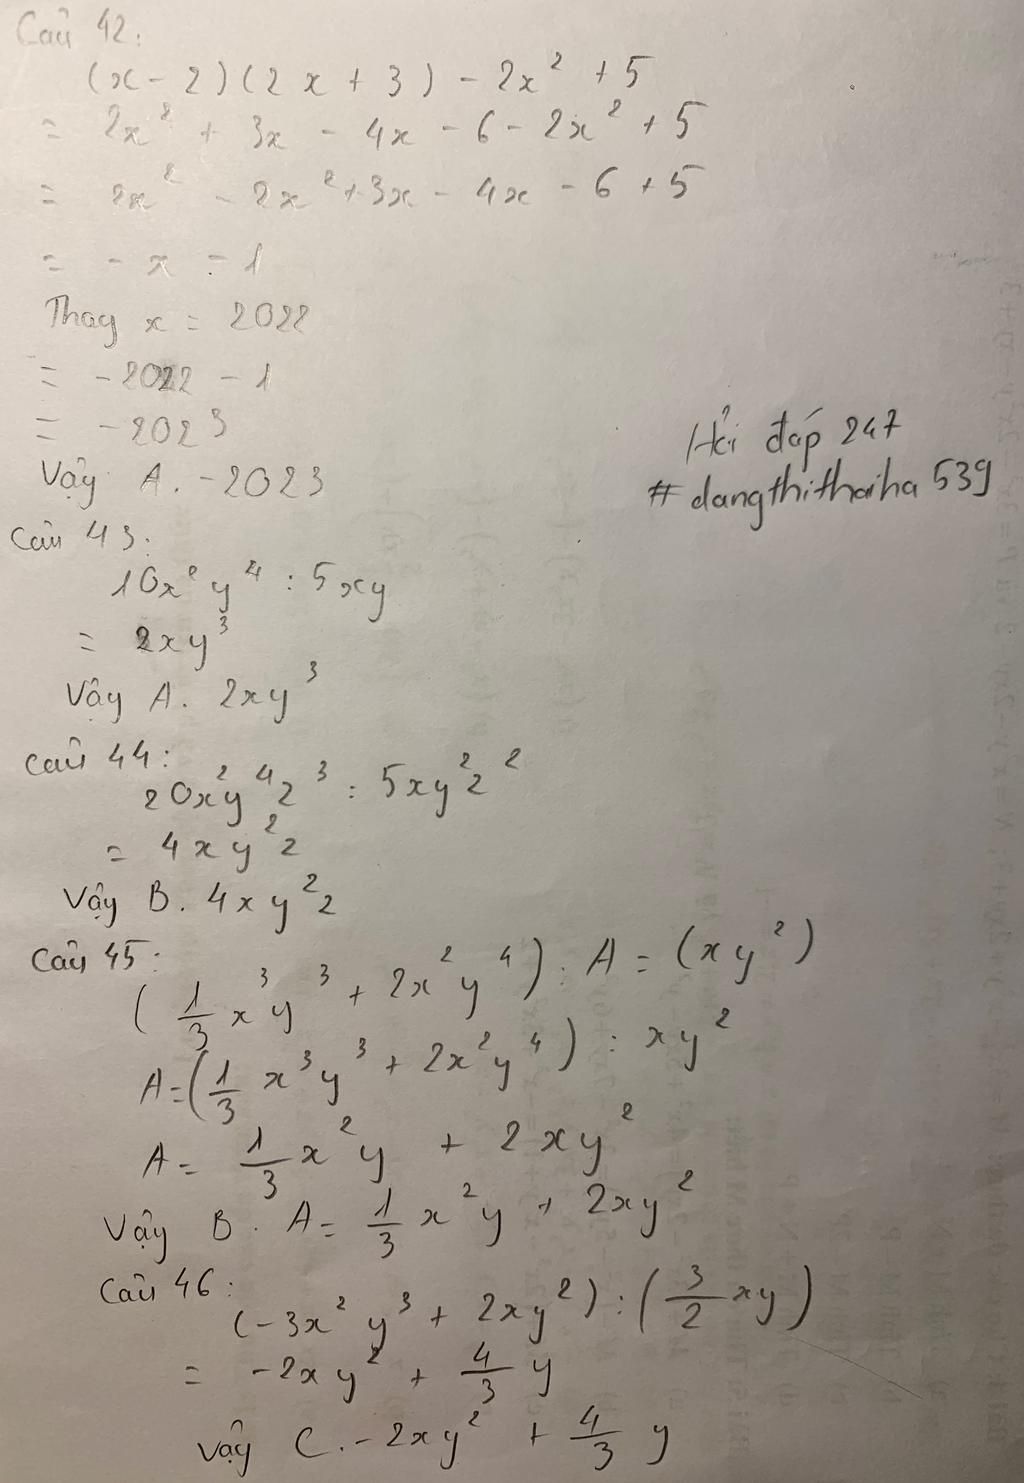 Câu 42:
(x - 2)(2x + 3) - 2x² + 5
= 2x² + 3x - 4x - 6 - 2x² + 5
= 2x² - 2x² + 3x - 4x - 6 + 5
= - x - 1
Thay x = 2022
= -2022 - 1
= -2023
Vậy A. -2023
Hỏi đáp 247
#dangthithaiha539
Câu 43:
10x²y⁴ : 5xy
= 2xy³
Vậy A. 2xy³
Câu 44:
20x²y⁴z³ : 5xy²z²
= 4xy²z
Vậy B. 4xy²z
Câu 45:
(1/3 x³y³ + 2x²y⁴) : A = (xy²)
A = (1/3 x³y³ + 2x²y⁴) : xy²
A = 1/3 x²y + 2xy²
Vậy B. A = 1/3 x²y + 2xy²
Câu 46:
(-3x²y³ + 2xy²) : (3/2 xy)
= -2xy² + 4/3 y
Vậy C. -2xy² + 4/3 y